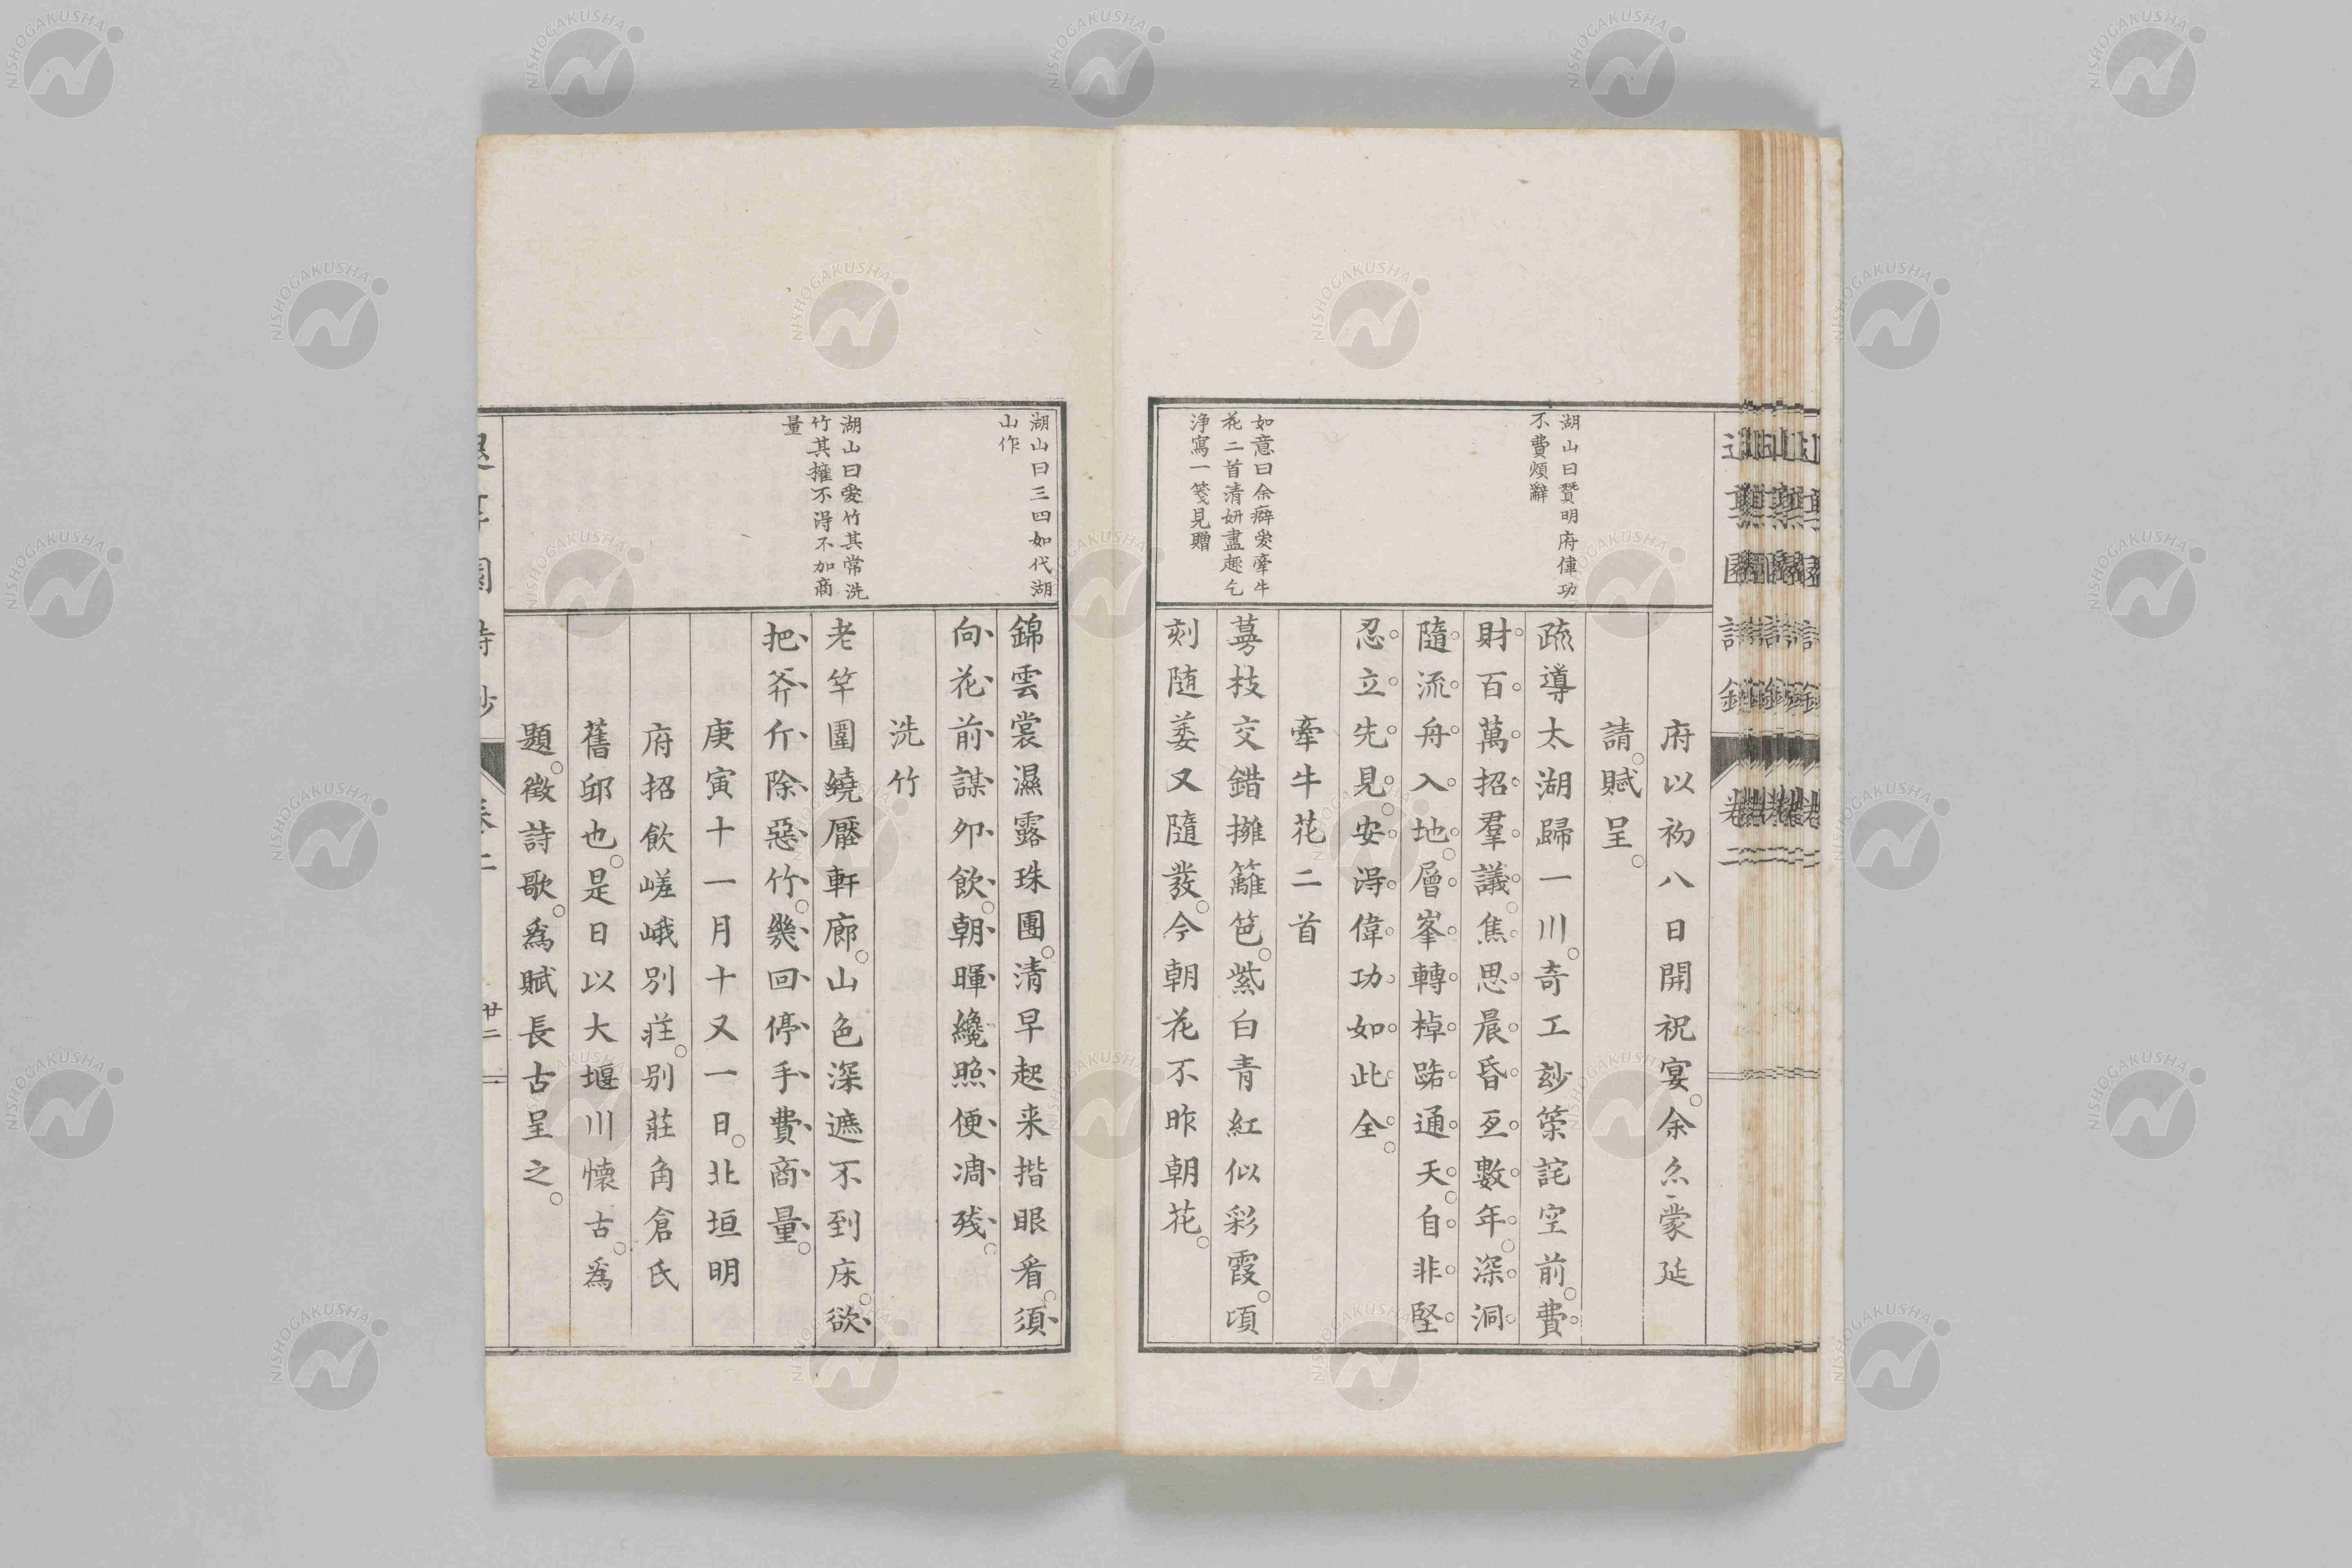 湖山曰贊明府偉功
不費煩辭
如意曰余癖愛牽牛
花二首清妍盡趣乞
淨寫一箋見贈
府以初八日開祝宴。余亦蒙延
請。賦呈。
疏導太湖歸一川。奇工玅築詫空前。費
財百萬招羣議。焦思晨昏亙數年。深洞
隨流舟入地。層峯轉棹踏通天。自非堅
忍立先見。安得偉功如此全。
牽牛花二首
蔓枝交錯擁籬笆。紫白青紅似彩霞。頃
刻隨萎又隨發。今朝花不昨朝花。
湖山曰三四如代湖
山作
湖山曰愛竹其常洗
竹其攉不得不加商
量
錦雲裳濕露珠團。清早起来揩眼看。須
向花前謀夘飲。朝暉纔照便凋殘。
洗竹
老竿圍繞壓軒廊。山色深遮不到床。欲
把斧斤除惡竹。幾回停手費商量。
庚寅十一月十又一日。北垣明
府招飲嵯峨別莊。別莊角倉氏
舊邱也。是日以大堰川懷古。爲
題。徵詩歌。爲賦長古呈之。
卷二
廿二
NISHOGAKUSHA